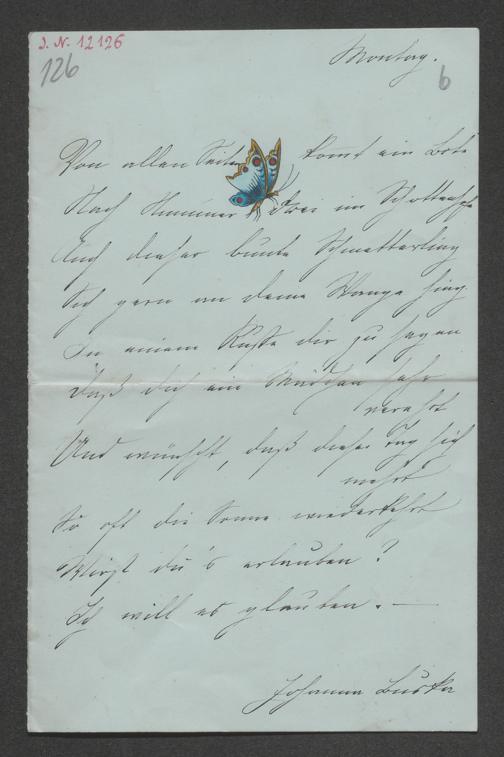 J. N. 12126
126
Montag.
6
Von allen Seiten kommt ein Bote
Nach Nummer Drei im Schottenhof
Auch dieser bunte Schmetterling
Sich gern an deine Wange hing
In einem Kusse dir zu sagen
Daß dich ein Mädchen sehr
verehrt
Und wünscht, daß dieser Tag sich
mehrt
So oft die Sonne wiederkehrt
Wirst du's erlauben?
Ich will es glauben. —
Johanna Buska